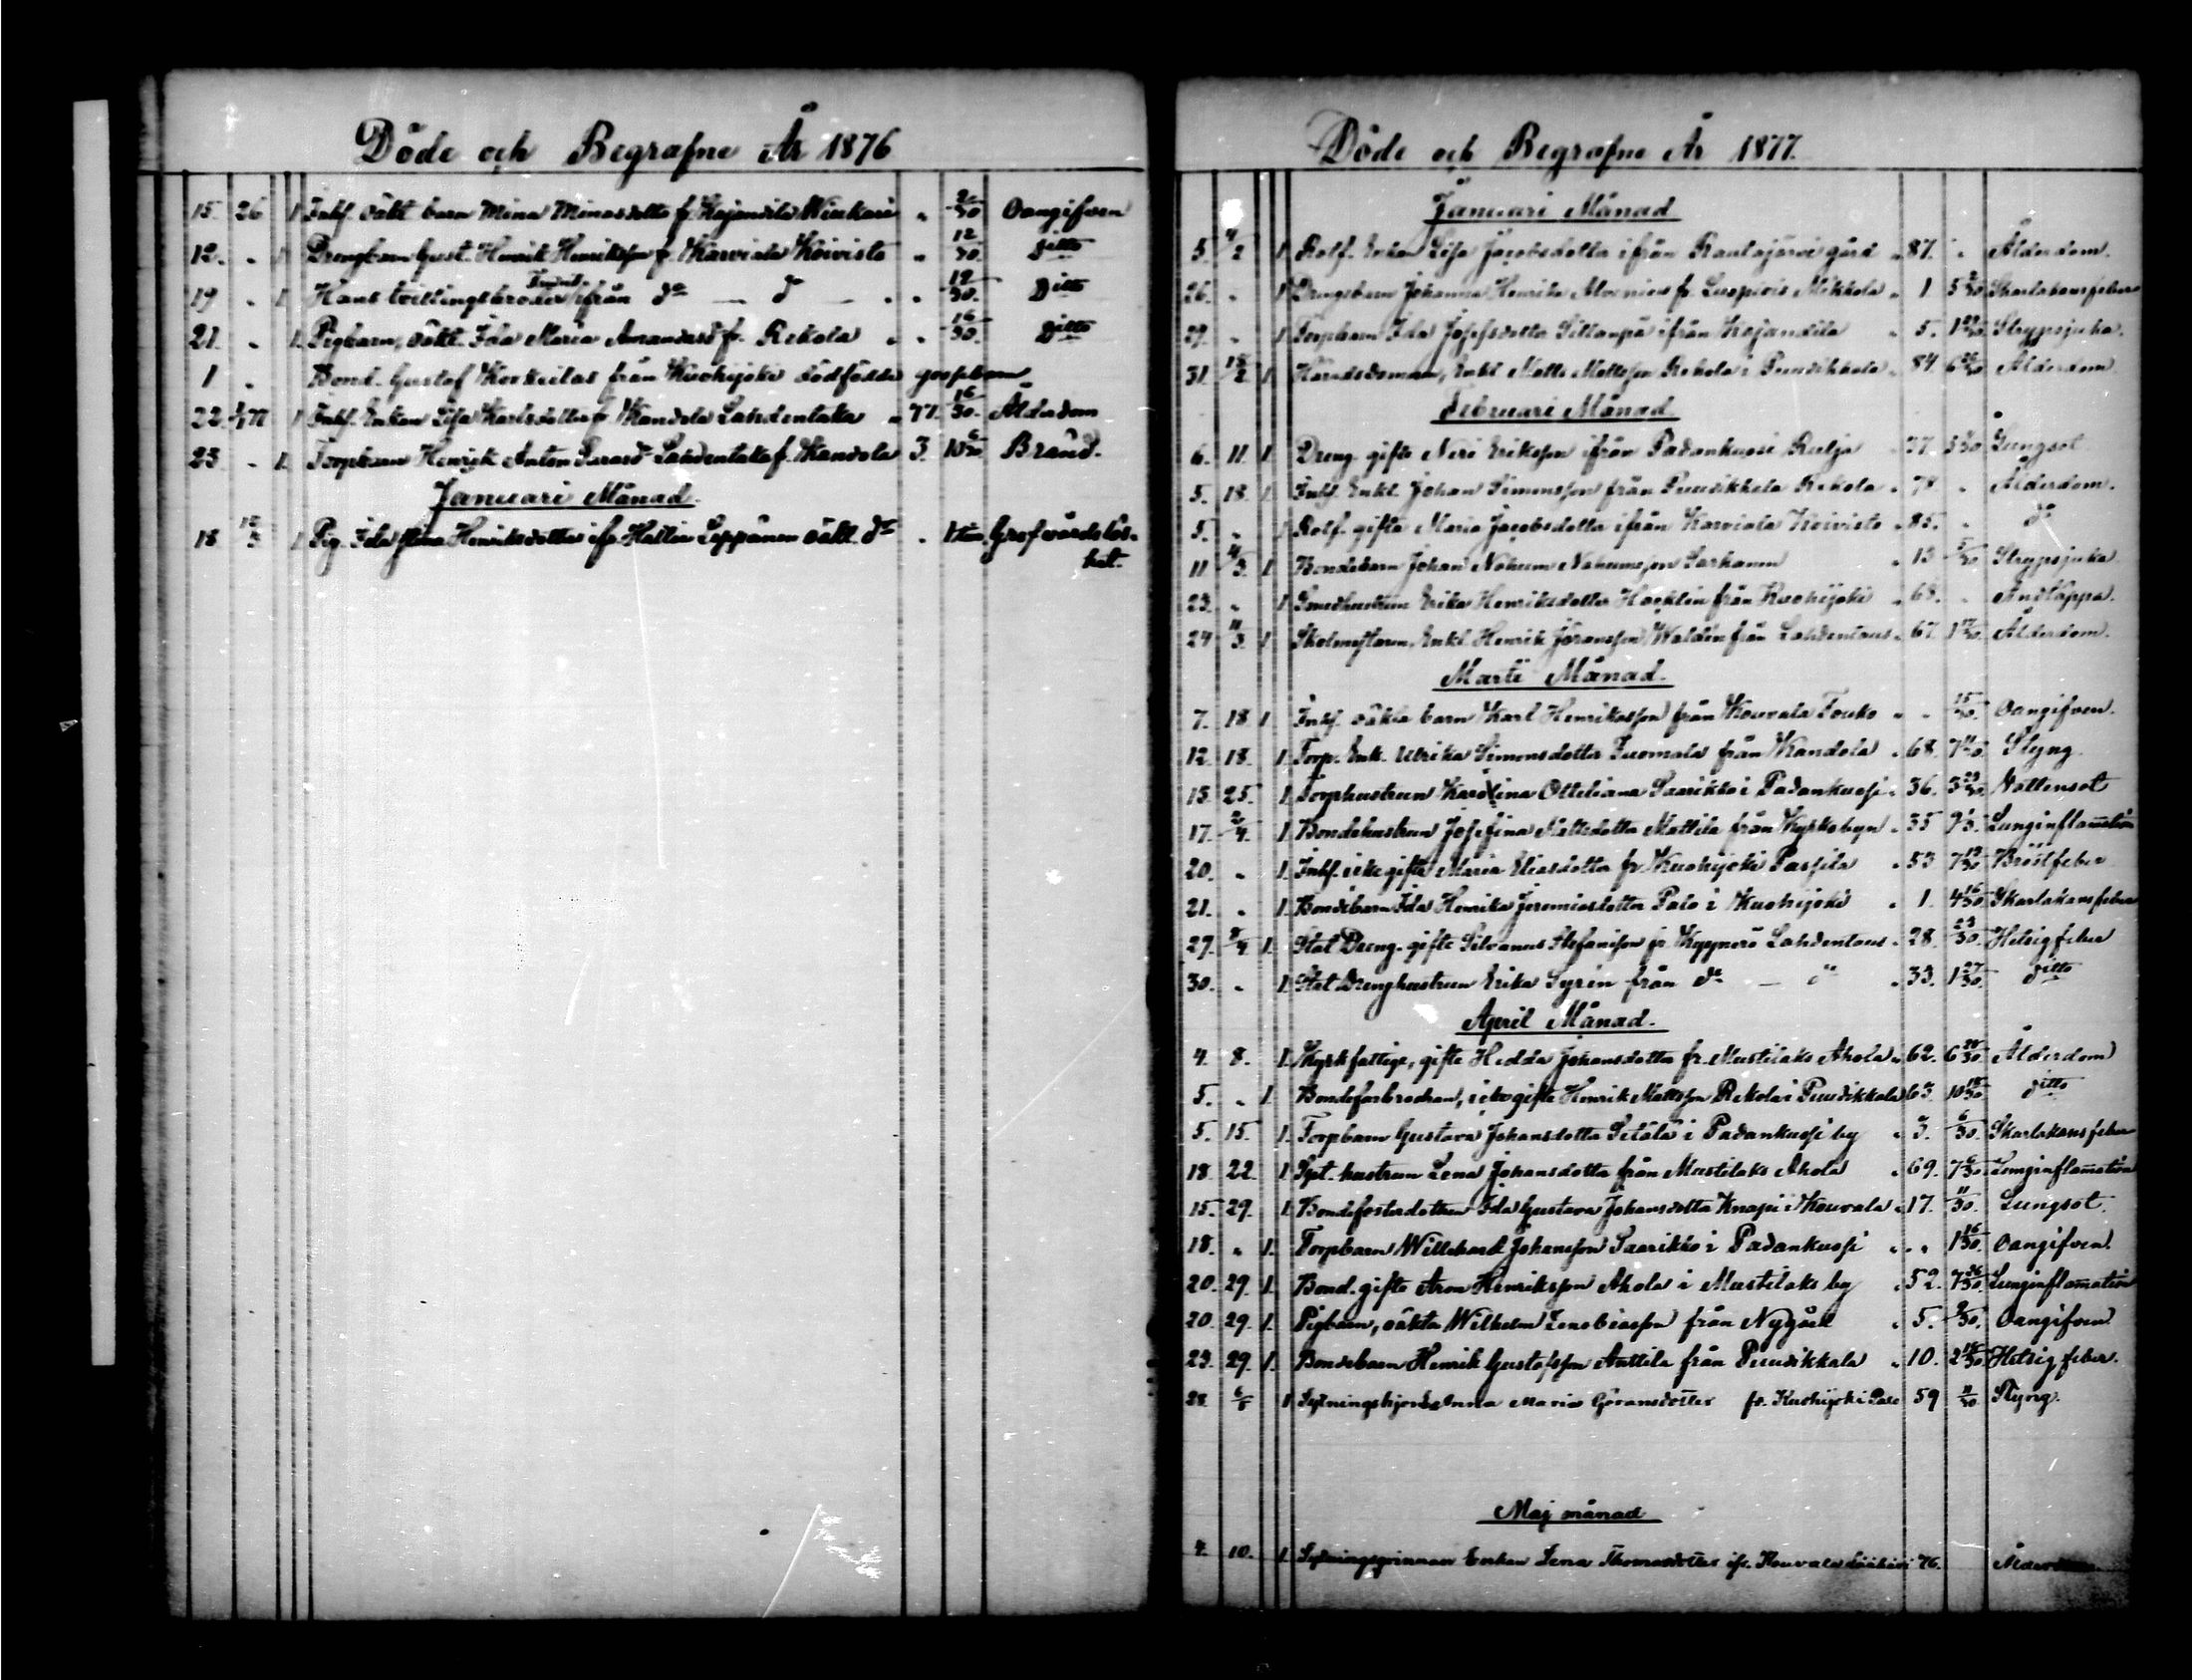 Döde och Begrafne År 1876
15. 26 1 Inhs. oäkt. barn Mina Minasdotter fr. Kajandila " 2/30 Oangifven
12. " 1 Drengbarn Gust. Henrik Henriksson fr. Karviala Koivisto " 12/30. Ditto
19 " 1 Hans tvillingsbroder ifrån do — do — " " 19/30. Ditto
21. " 1. Pigbarn, oäkt. Ida Maria Amandasd. fr. Rekola " " 16/30. Ditto
1 " Bond. Gustaf från Kuohijoki dödfödde gossebarn
22. 1 Inhs. Enkan Lisa Karlsdotter fr. Kandola Lahdentaka " 77. 16/30. Ålderdom
23 " 1. Torpbarn Henrik Anton Lahdentaka f. Kandola 3. 10 6/30 Brand.
Januari Månad.
18 1 Pig. Ida Stina Henriksdotter ifr. Hallia Leppänen oäkt. do " 1 tim. Graf vårdslös-
het.
Döde och Begrafne År 1877.
Januari Månad
3. 4/2 1 Rotf. Enkan Lisa Jacobsdotter ifrån Rautajärvi gård " 87. " Ålderdom.
26. " 1 Drengsbarn Johanna Henrika Alvenius fr. Luopiois Mikkola " 1 5 Skarlakansfeber
29. " 1 Torpbarn Ida Josefsdotter Sillanpä ifrån Kajandila " 5. 1 Strypsjuka.
31. 18/2 1 Häradsdomaren, Enkl. Matts Mattsson Rekola i Puutikkala " 84 6 Ålderdom
Februari Månad.
6. 11. 1 Dreng. gifte Nero Eriksson ifrån Padankoski Rulja 37. Lungsot
5. 18. 1 Inhs. Enkl. Johan Simonsson från Puutikkala Rekola " 78 " Ålderdom.
5. " 1 Rotf. gifta Maria Jacobsdotter ifrån Karviala Koivisto " 85. " do
11 4/3. 1 Bondebarn Johan Nahum Nahumsson Sarhanen " 13 5/30 Strypsjuka
23. " 1 Smedhustrun Erika Henriksdotter från Kuohijoki " 68. " Andtäppa.
24 11/3. 1 Skolmästaren, Enkl. Henrik Göransson Waldén från Lahdentaus " 67. 1 17/30. Ålderdom.
Marti Månad.
7. 18 1 Inhs. oäkta barn Karl Henriksson från Kouvala Touko " " 15/30. Oangifven.
12. 18. 1 Torp. Enk. Ulrika Simonsdotter Tuomala från Kandola " 68. 7 Styng.
13. 25. 1. Torphustrun Karolina Ottiliana Saarikko i Padankoski " 36. 3 23/30. Vattensot
17. 2/4. 1 Bondehustrun Josefina Mattsdotter Mattila från Kyrkobyn " 35 9 Lunginflamation
20. " 1. Inhs. icke gifta Maria Eliasdotter fr. Kuohijoki Passila " 53 7 12/30 Bröstfeber
21. " 1. Bondebarn Ida Henrika Jeremiasdotter Palo i Kuohijoki " 1. 4 16/30 Skarlakansfeber
27. 8/4 1. Stat Dreng. gifte Silvanus Stefansson fr. Kyynärö Lahdentaus " 28. 23/30. Hetsig feber
30. " 1. Stat Drenghustrun Erika Syrén från do — do " 33. 1 27/30. ditto
April Månad.
4. 8. 1. Kyrkfattige, gifte Hedda Johansdotter fr. Mustilaks Ahola " 62. 6 20/30 Ålderdom
5. " 1. Bondefarbrodren, icke gifte Henrik Mattsson Rekola i Puutikkala 63. 10 18/30 ditto
5. 15. 1. Torpbarn Gustava Johansdotter Setälä i Padankoski by " 3. 6/30. Skarlakansfeber
18 22. 1 Spt. hustrun Lena Johansdotter från Mustilaks Ahola " 69. 7 6/30. Lunginflamation
15. 29. 1. Bondefosterdottren Ida Gustava Johansdotter Knapi i Kouvala " 17. 11/30. Lungsot.
18. " 1. Torpbarn Willehard Johansson Saarikko i Padankoski " " 1 16/30. Oangifven.
20. 29. 1. Bond. gifte Aron Henriksson Ahola i Mustilaks by " 52. 7 26/30. Lunginflamation
20. 29. 1. Pigbarn, oäkta Wilhelm Zenobiasson från Nygård " 5. 9/30. Oangifven
23. 29. 1. Bondebarn Henrik Gustafsson Anttila från Puutikkala " 10. 2 16/30 Hetsig feber.
28. 6/5 1 Sytningshjonet Anna Maria Göransdotter fr. Kuohijoki Palo 59 11/30 Styng.
Maj månad
4. 10. 1. Sytningsqvinnan Enkan Lena Thomasdotter ifr. Kouvala 76. Ålderdom